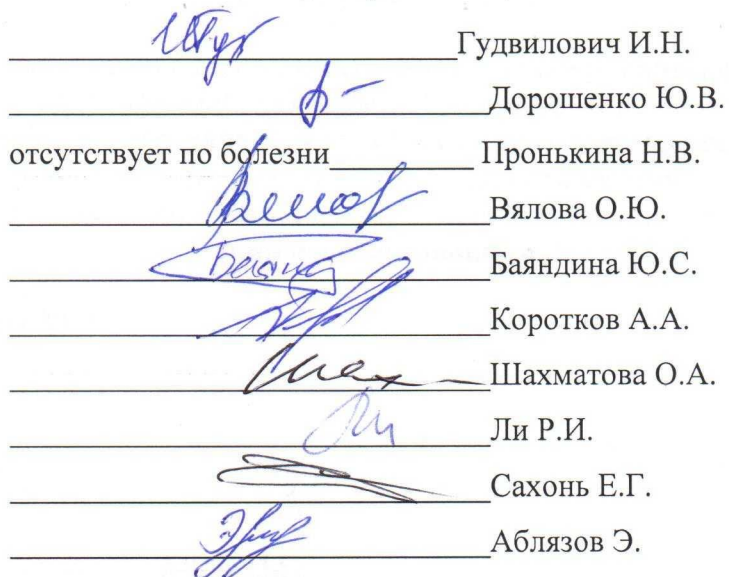 Гудвилович И.Н.
Дорошенко Ю.В.
отсутствует по болезни Пронькина Н.В.
Вялова О.Ю.
Баяндина Ю.С.
Коротков А.А.
Шахматова О.А.
Ли Р.И.
Сахонь Е.Г.
Аблязов Э.